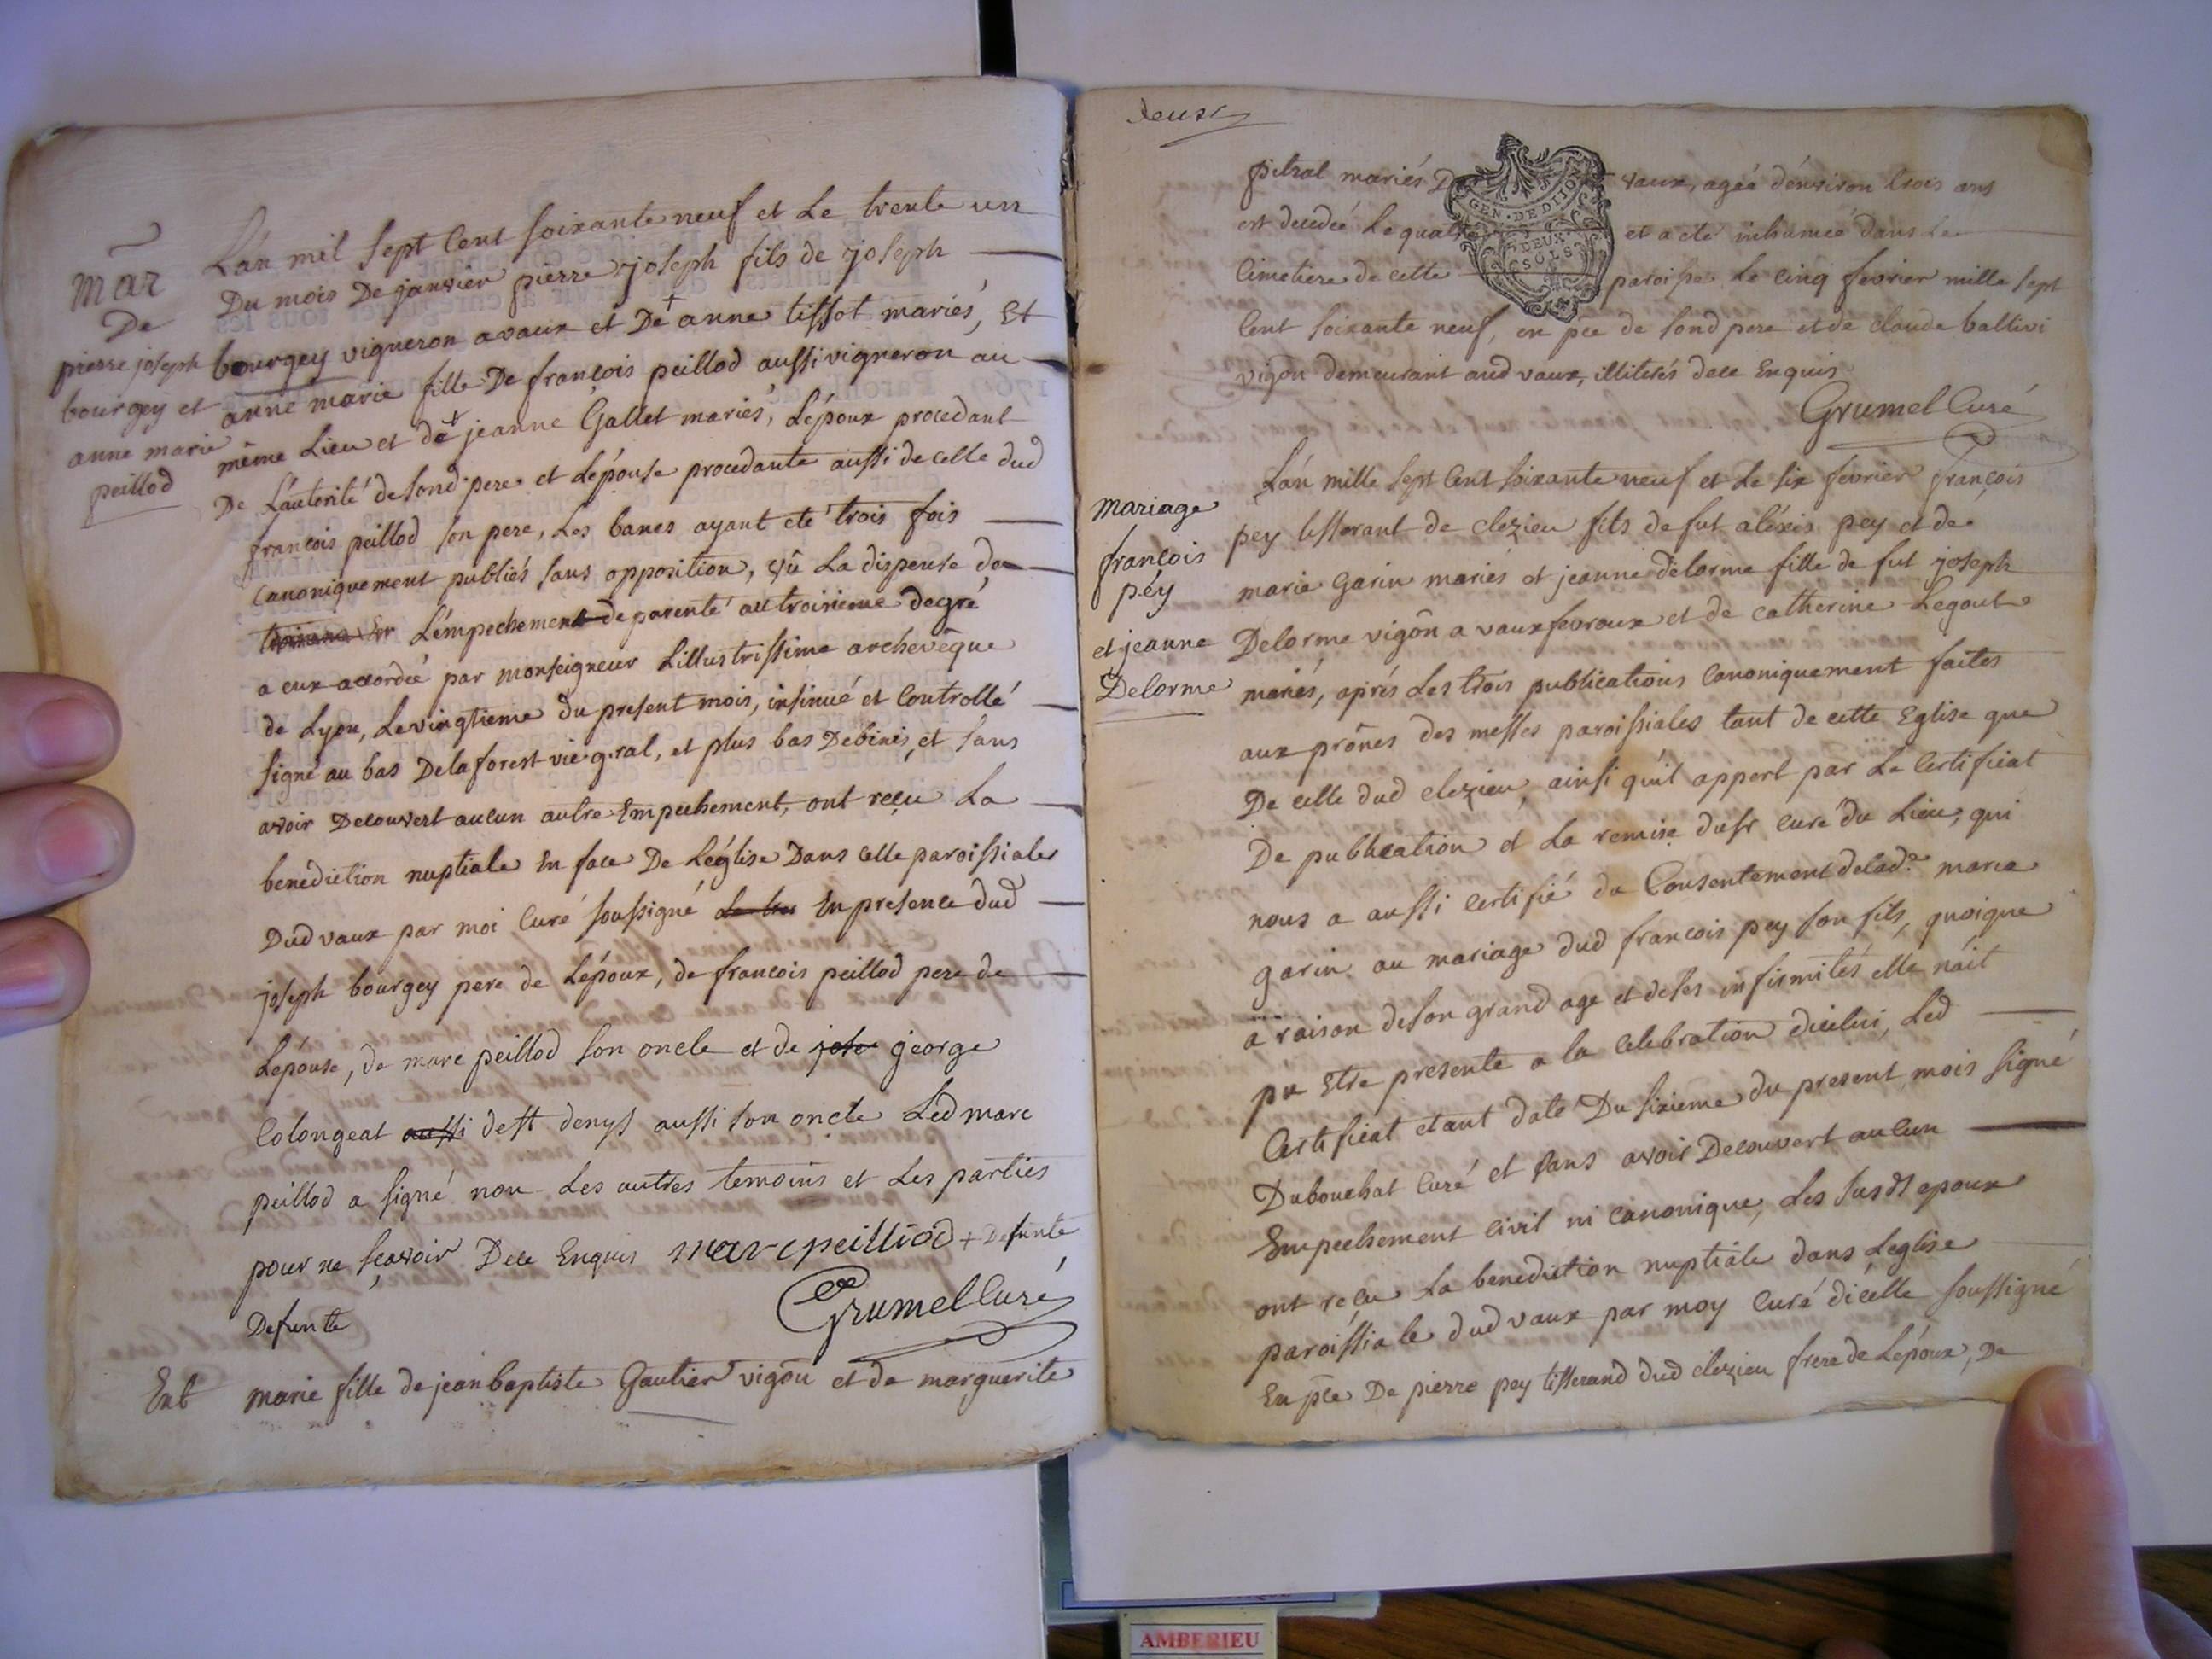 mar
De
pierre joseph
bourgey et
anne marie
peillod
L'an mil sept Cent soixante neuf et Le trente un
Du mois De janvier pierre joseph fils de joseph
bourgey vigneron a vaux et De + anne tissot mariés, Et
anne marie fille De françois peillod aussi vigneron au
même Lieu et de + jeanne Gallet mariés, L'époux procedant
De L'autorité de sond pere et L'epouse procedante aussi de celle dud
francois peillod son pere, Les bancs ayant eté trois fois
Canoniquement publiés sans opposition, vû La dispense de
L'émpechement de parenté au troisieme degré
a eux accordée par monseigneur L'illustrissime archevêque
de Lyon, Le vingtieme du present mois, insinué et Controllé
signé au bas Delaforest vic g.ral, et plus bas Debinis, et sans
avoir Decouvert aucun autre Empechement, ont reçu La
benediction nuptiale En face De L'église Dans celle paroissiale
Dud vaux par moi Curé soussigné En presence dud
joseph bourgey pere de L'époux, de francois peillod pere de
L'épouse, de marc peillod son oncle et de george
Colongeat aussi de st denys aussi son oncle Led marc
peillod a signé non Les autres temoins et Les parties
pour ne sçavoir De ce Enquis marc peilliod + Defunte
Defunte
Grumel Curé
Ent
marie fille de jean baptiste Gautier vigôn et de marguerite
deux
pitral mariés D vaux, agée d'environ trois ans
est decedée Le quatre et a eté inhumée dans Le
Cimetiere de cette paroisse Le cinq fevrier mille sept
Cent soixante neuf, en pce de sond pere et de claude ballivi
vigôn demeurant aud vaux, illiterés de ce Enquis
GEN. DE DIJON
DEUX
SOLS
Grumel Curé
mariage
françois
péy
et jeanne
Delorme
L'an mille sept Cent soixante neuf et Le six fevrier françois
pey tisserant de clezieu fils de fut aléxis pey et de
marie Garin mariés et jeanne delorme fille de fut joseph
Delorme vigôn a vauxfevroux et de catherine Legout
mariés, aprés Les trois publications Canoniquement faites
aux prônes des messes paroissiales tant de cette Eglise que
De celle dud clezieu, ainsi qu'il appert par Le Certificat
De publication et La remise du sr curé du Lieu, qui
nous a aussi Certifié du Consentement de lad.e marie
garin au mariage dud francois pey son fils, quoique
a raison de son grand age et de ses infirmités elle n'ait
pu Etre presente a la Celebration d'icelui, Led
Certificat etant daté Du sixieme du present mois signé
Dubouchat Curé et sans avoir Decouvert aucun
Empechement civil ni canonique, Les susdts epoux
ont reçu La benediction nuptiale dans L'eglise
paroissiale dud vaux par moy Curé d'icelle soussigné
En pce De pierre pey tisserand dud clezieu frere de L'époux, De
AMBERIEU